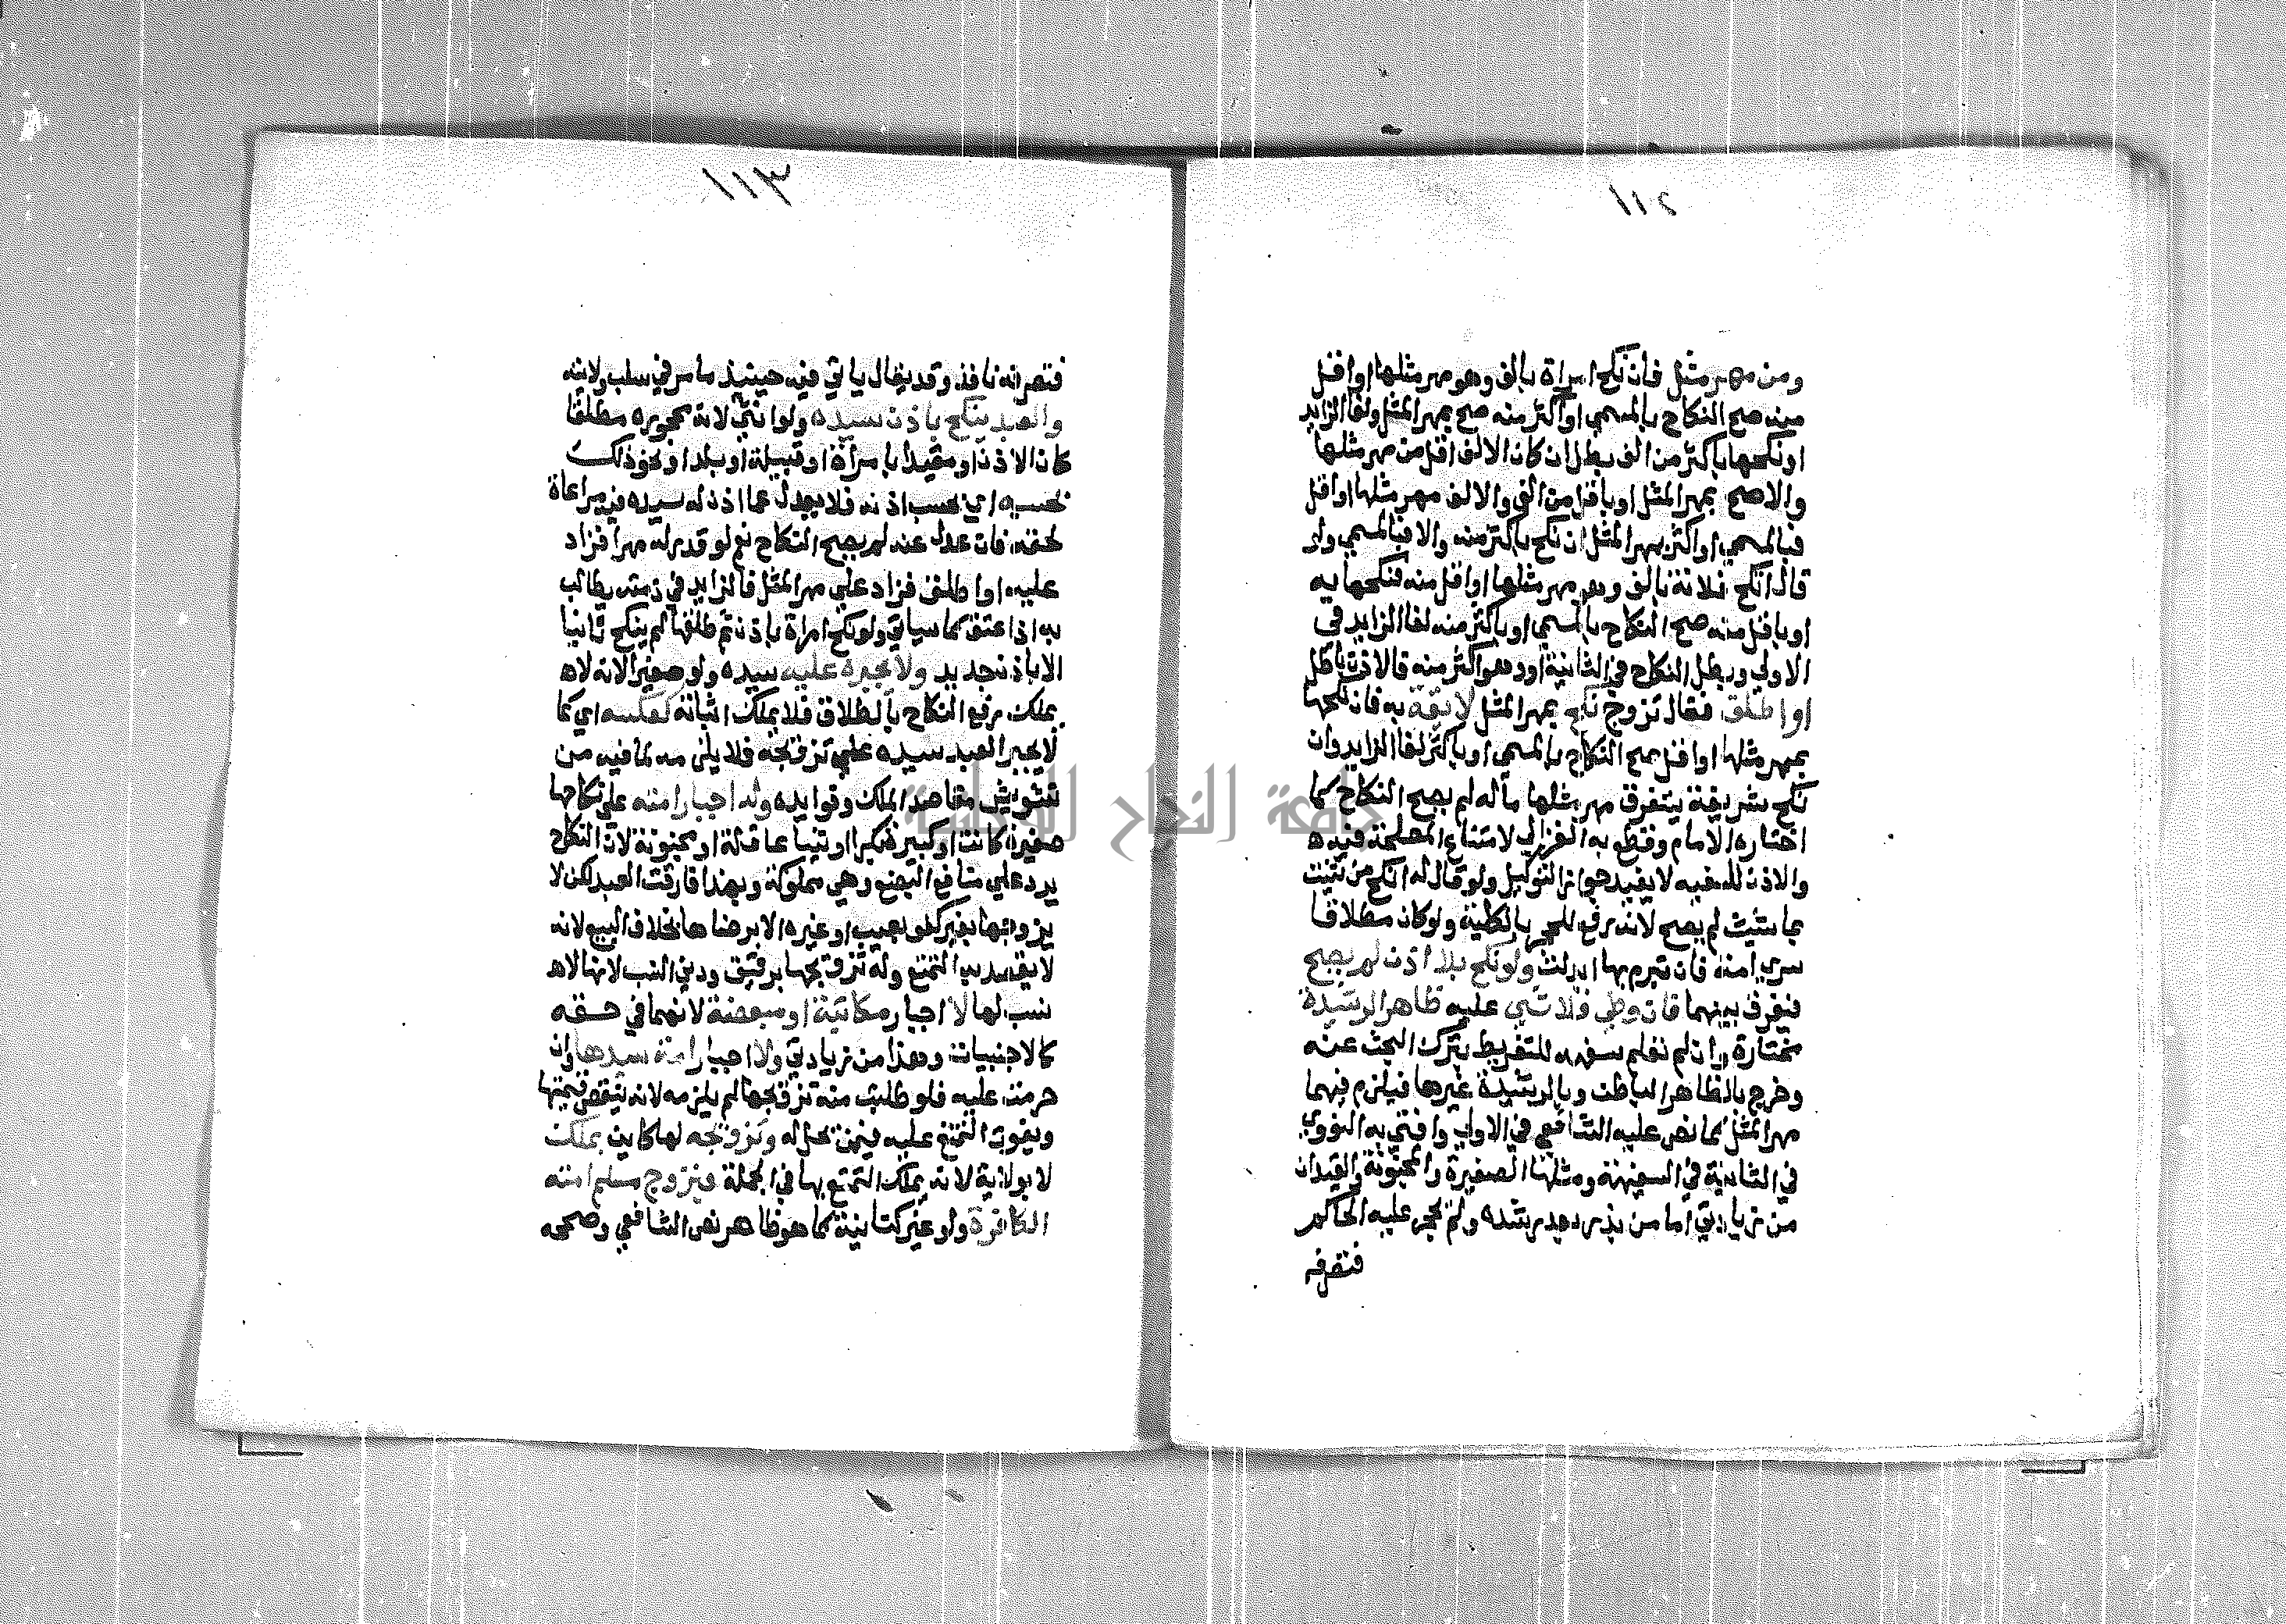 ١١٢
ومن مهر مثل فان نكح امراة بالف وهو مهر مثلها او اقل
منه صح النكاح بالمسمي او اكثر منه صح بمهر المثل ولغا الزايد
او نكحها باكثر من الف بطل ان كان الالف اقل من مهر مثلها
والا صح بمهر المثل او باقل من الف والالف مهر مثلها او اقل
فبالمسمي او اكثر بمهر المثل ان نكح باكثر منه والا فبالمسمي ولو
قال انكح فلانة بالف وهو مهر مثلها او اقل منه فنكحها به
او باقل منه صح النكاح بالمسمي او باكثر منه لغا الزايد في
الاولي وبطل النكاح في الثانية او وهو اكثر منه فالاذن باطل
او اطلق فقال تزوج نكح بمهر المثل لايقة به فان نكحها
بمهر مثلها او اقل صح النكاح بالمسمي او باكثر لغا الزايد وان
نكح شريفة يستغرق مهر مثلها ماله لم يصح النكاح كما
اختاره الامام وقطع به الغزالي لانتفاء المصلحة فيه
والاذن للسفيه لا يفيد جواز التوكيل ولو قال له انكح من شئت
بما شئت لم يصح لانه رفع للحجر بالكلية ولو كان مطلاقا
سري امة فان تبرم بها ابدلت ولو نكح بلا اذن لم يصح
فيفرق بينهما فان وطي فلا شي عليه ظاهرا لرشيدة
مختارة وان لم تعلم سفهه للتفريط بترك البحث عنه
وخرج بالظاهر الباطن وبالرشيدة غيرها فيلزم فيهما
مهر المثل كما نص عليه الشافعي في الاولي وافتي به النووي
في الثانية في السفيهة ومثلها الصغيرة والمجنونة والقيدان
من زيادتي اما من بذر بعد رشده ولم يحجر عليه الحاكم
فتصرفه
١١٣
فتصرفه نافذ وقد يقال ياتي فيه حينيذ ما مر في سلب ولايته
والعبد ينكح باذن سيده ولو انثي لانه محجوره مطلقا
كان الاذن او مقيدا بامراة او قبيلة او بلد او نحو ذلك
بحسبه اي بحسب اذنه فلا يعدل عما اذن له سيده فيه مراعاة
لحقه فان عدل عنه لم يصح النكاح نعم لو قدر له مهرا فزاد
عليه او اطلق فزاد علي مهر المثل فالزايد في ذمته يطالب
به اذا عتق كما سياتي ولو نكح امراة باذن ثم طلقها لم ينكح ثانيا
الا باذن جديد ولا يجبره عليه سيده ولو صغيرا لانه لا
يملك رفع النكاح بالطلاق فلا يملك اثباته كعكسه اي كما
لا يجبر العبد سيده علي تزويجه فلا يلزمه لما فيه من
تشويش مقاصد الملك وفوايده وله اجبار امته علي نكاحها
صغيرة كانت او كبيرة بكرا او ثيبا عاقلة او مجنونة لان النكاح
يرد علي منافع البضع وهي مملوكة وبهذا فارقت العبد لكن لا
يزوجها بغير كفو بعيب او غيره الا برضاها بخلاف البيع لانه
لا يقصد به التمتع وله تزويجها برقيق ودني النسب لانها لا
نسب لها لا اجبار مكاتبة او مبعضة لانهما في حقه
كالاجنبيات وهذا من زيادتي ولا اجبار امة سيدها وان
حرمت عليه فلو طلبت منه تزويجها لم يلزمه لانه ينقص قيمتها
ويفوت التمتع عليه فيمن تحل له وتزويجه لها كاين بملك
لا بولاية لانه يملك التمتع بها في الجملة فيزوج مسلم امته
الكافرة ولو غير كتابية كما هو ظاهر نص الشافعي وصححه
جامعة النجاح الوطنية